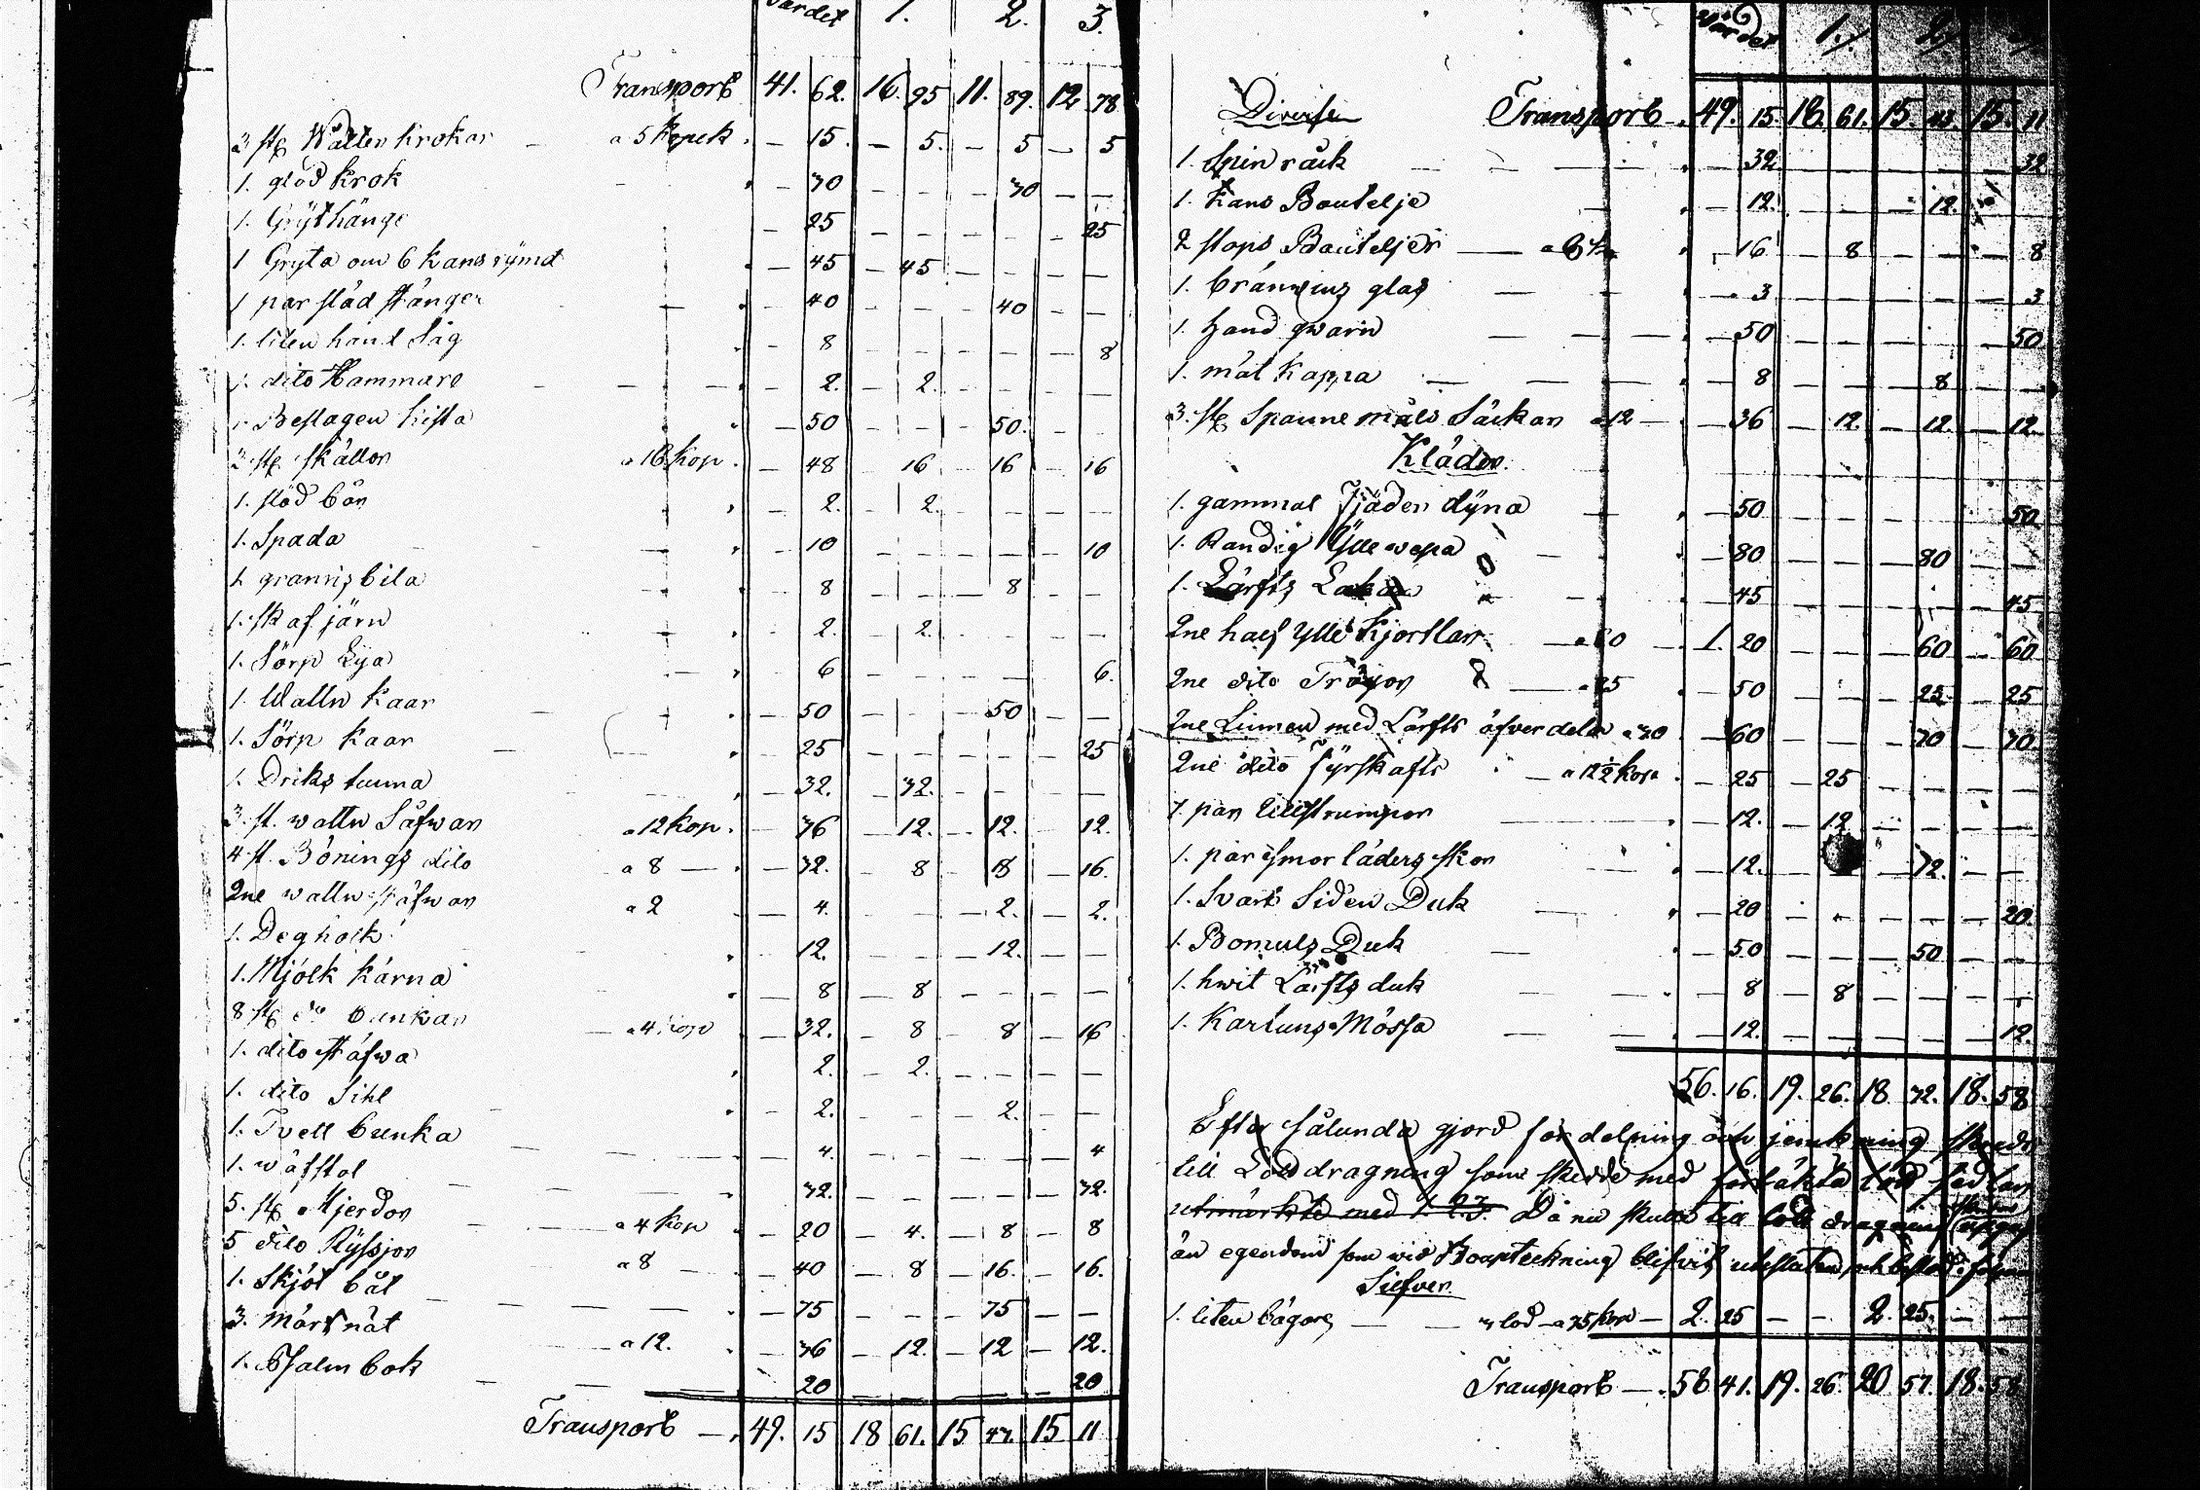 Värdet 1. 2. 3.
Transport 41. 62. 16. 95 11. 89. 12 78
3 st. Watten krokar a 5 Kopek. — 15. — 5. — 5 — 5
1. glöd krok — 30 — — — 30 — —
1. Grythänge — 25 — — — — — 25
1 Gryta om 6 kans rymd — 45 — 45 — — — —
1 par städ stänger — 40 — — — 40 — —
1. liten hand Såg — 8 — — — — — 8
1. dito Hammare — 2. — 2. — — — —
1. Beslagen kista — 50 — — — 50. — —
3 st. skällor a 16 Kop. — 48 — 16 — 16 — 16
1. stöd bår — 2. — 2. — — — —
1. Spada — 10 — — — — — 10
1. bila — 8 — — — 8 — —
1. skaf järn — 2. — 2. — — — —
1. Sörp Lya — 6 — — — — — 6.
1. Wattu kaar — 50 — — — 50 — —
1. Sörp kaar — 25 — — — — — 25
1. Driks tunna — 32. — 32. — — — —
3. st. wattu Såfwar a 12 Kop. — 36 — 12. — 12. — 12.
4. st. Bönings dito a 8 — 32. — 8 — 8 — 16.
2ne wattu stäfwor a 2 — 4. — — — 2. — 2.
1. Deghoik — 12. — — — 12. — —
1. Mjölk kärna — 8 — 8 — — — —
8 st. do bunkar a 4 kop — 32. — 8 — 8 — 16
1. dito stäfwa — 2. — 2. — — — —
1. dito Sihl — 2. — — — 2. — —
1. Tvett bunka — 4. — — — — — 4
1. wäfstol — 32. — — — — — 32.
5. st. Mjerdor a 4 Kop — 20 — 4. — 8 — 8
5 dito Ryssjor a 8 — 40 — 8 — 16. — 16.
1. Skjöt båt — 75 — — — 75 — —
3. Mört nät a 12. — 36 — 12. — 12 — 12.
1. Psalm bok — 20 — — — — — 20
Transport — 49. 15 18 61. 15 43. 15 11
Värdet 1. 2.
Diverse Transport — 49. 15 18. 61. 15. 43. 15. 11
1. Spin råck — 32 — — — — — 32
1. Kans Boutelje — 12. — — — 12. — —
2 stops Bouteljer a 8 k. — 16 — 8 — — — 8
1. bränwins glas — 3 — — — — — 3
1. Hand qwarn — 50 — — — — — 50
1. måt kappa — 8 — — — 8 — —
3. st. Spanne måls Säckar a 12 — 36 — 12. — 12. — 12.
Kläder
1. gammal Fjäder dyna — 50 — — — — — 50
1. Randig Ylle wepa — 80 — — — 80 — —
1. Lärfts Lakan — 45 — — — — — 45
2ne half ylle Kjortlar a 60 — 1. 20 — — — 60 — 60
2ne dito Tröjor a 25 — 50 — — — 25 — 25
2ne Linnen med Lärfts öfverdelar a 30 — 60 — — — 30 — 30.
2ne dito Fyrskafts a 12½ Kop. — 25 — 25 — — — —
1. par Ullstrumpor — 12. — 12 — — — —
1. par smor läders skor — 12. — — — 12. — —
1. Svart Siden Duk — 20 — — — — — 20.
1. Bomuls Duk — 50 — — — 50 — —
1. hwit Lärfts duk — 8 — 8 — — — —
1. Kartuns Mössa — 12. — — — — — 12.
56. 16. 19. 26. 18 32. 18. 58
Efter sålunda gjord fördelning och jemkning skreds
till Lottdragning som skedde med lod
utmärkte med 1. 2. 3. Då nu skulle till lott dragning
än egendom som wid Boupteckning blifvit
Silfver
1. liten bägare 3 lod a 75 kop — 2. 25 — — 2. 25. — —
Transport — 58 41. 19. 26. 20 57. 18. 58